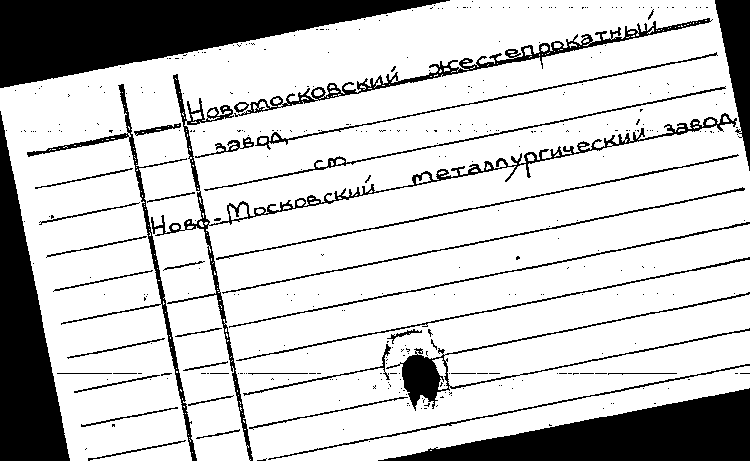 Новомосковский жестепрокатный
завод,
см.
Ново-Московский металлургический завод,